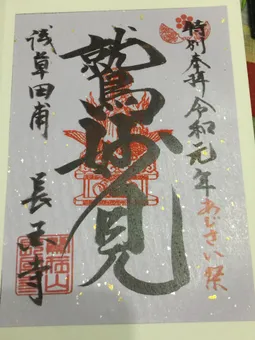 特別奉拝 令和元年
あじさい祭
鷲妙見
浅草田甫 長國寺